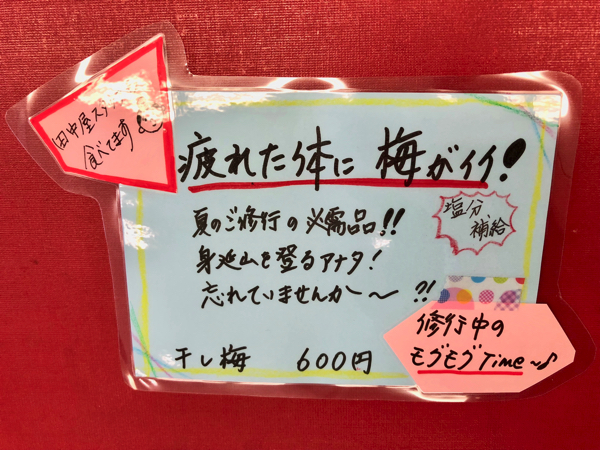 田中屋スタッフ
食べてます
疲れた体に 梅がイイ!
塩分
補給
夏のご修行の必需品!!
身延山を登るアナタ!
忘れていませんか〜?!
修行中の
モグモグTime〜♪
干し梅 600円